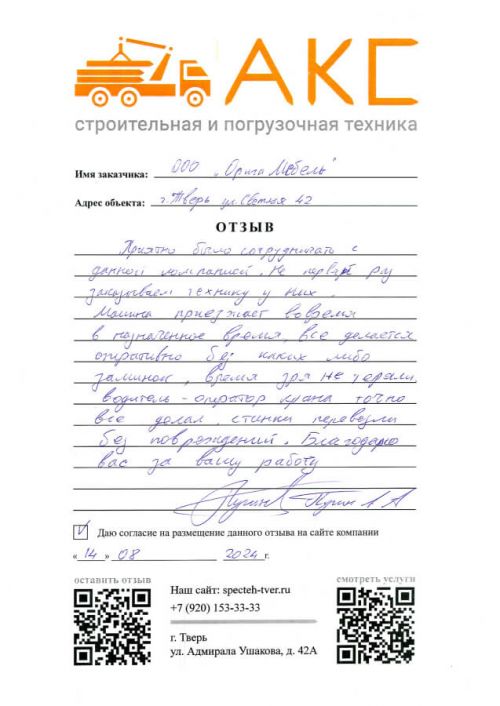 АКС
строительная и погрузочная техника
Имя заказчика: ООО "Орига Мебель"
Адрес объекта: г. Тверь ул. Светлая 42
ОТЗЫВ
Приятно было сотрудничать с
данной компанией. Не первый раз
заказываем технику у них.
Машина приезжает вовремя
в назначенное время, все делается
оперативно без каких либо
заминок, время зря не теряли,
водитель-оператор крана точно
все делал, станки перевезли
без повреждений. Благодарю
вас за вашу работу
Л А
V Даю согласие на размещение данного отзыва на сайте компании
« 14 » 08 2024г.
оставить отзыв
смотреть услуги
Наш сайт: specteh-tver.ru
+7 (920) 153-33-33
г. Тверь
ул. Адмирала Ушакова, д. 42А